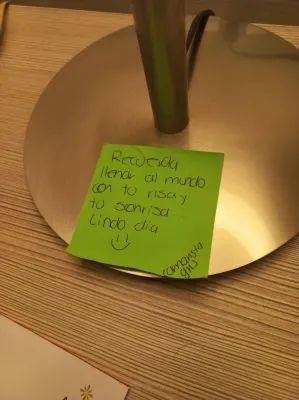 Recuerda
llenar al mundo
con tu risa y
tu sonrisa.
Lindo día